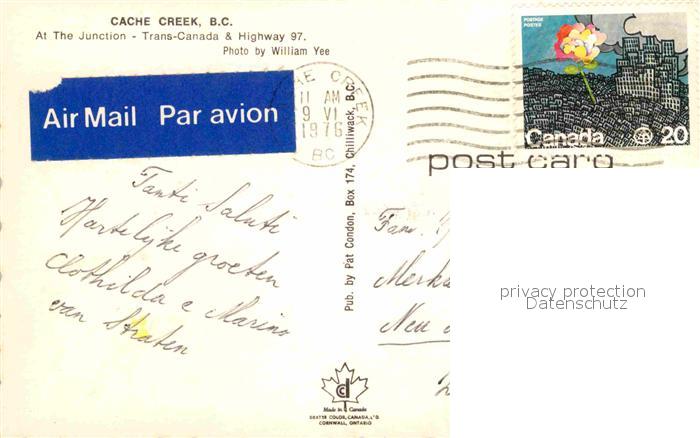 CACHE CREEK, B.C.
At The Junction - Trans-Canada & Highway 97.
Photo by William Yee
Air Mail Par avion
CACHE CREEK
11 AM
9 VI
1976
BC
POSTAGE
POSTES
Canada 20
post card
Tanti Saluti
Hartelijke groeten
Clothilda e Marino
van Straten
Pub. by Pat Condon, Box 174, Chilliwack, B.C.
Fam.
Merks
Neu
privacy protection
Datenschutz
Made in Canada
DEXTER COLOR, CANADA, LTD.
CORNWALL, ONTARIO